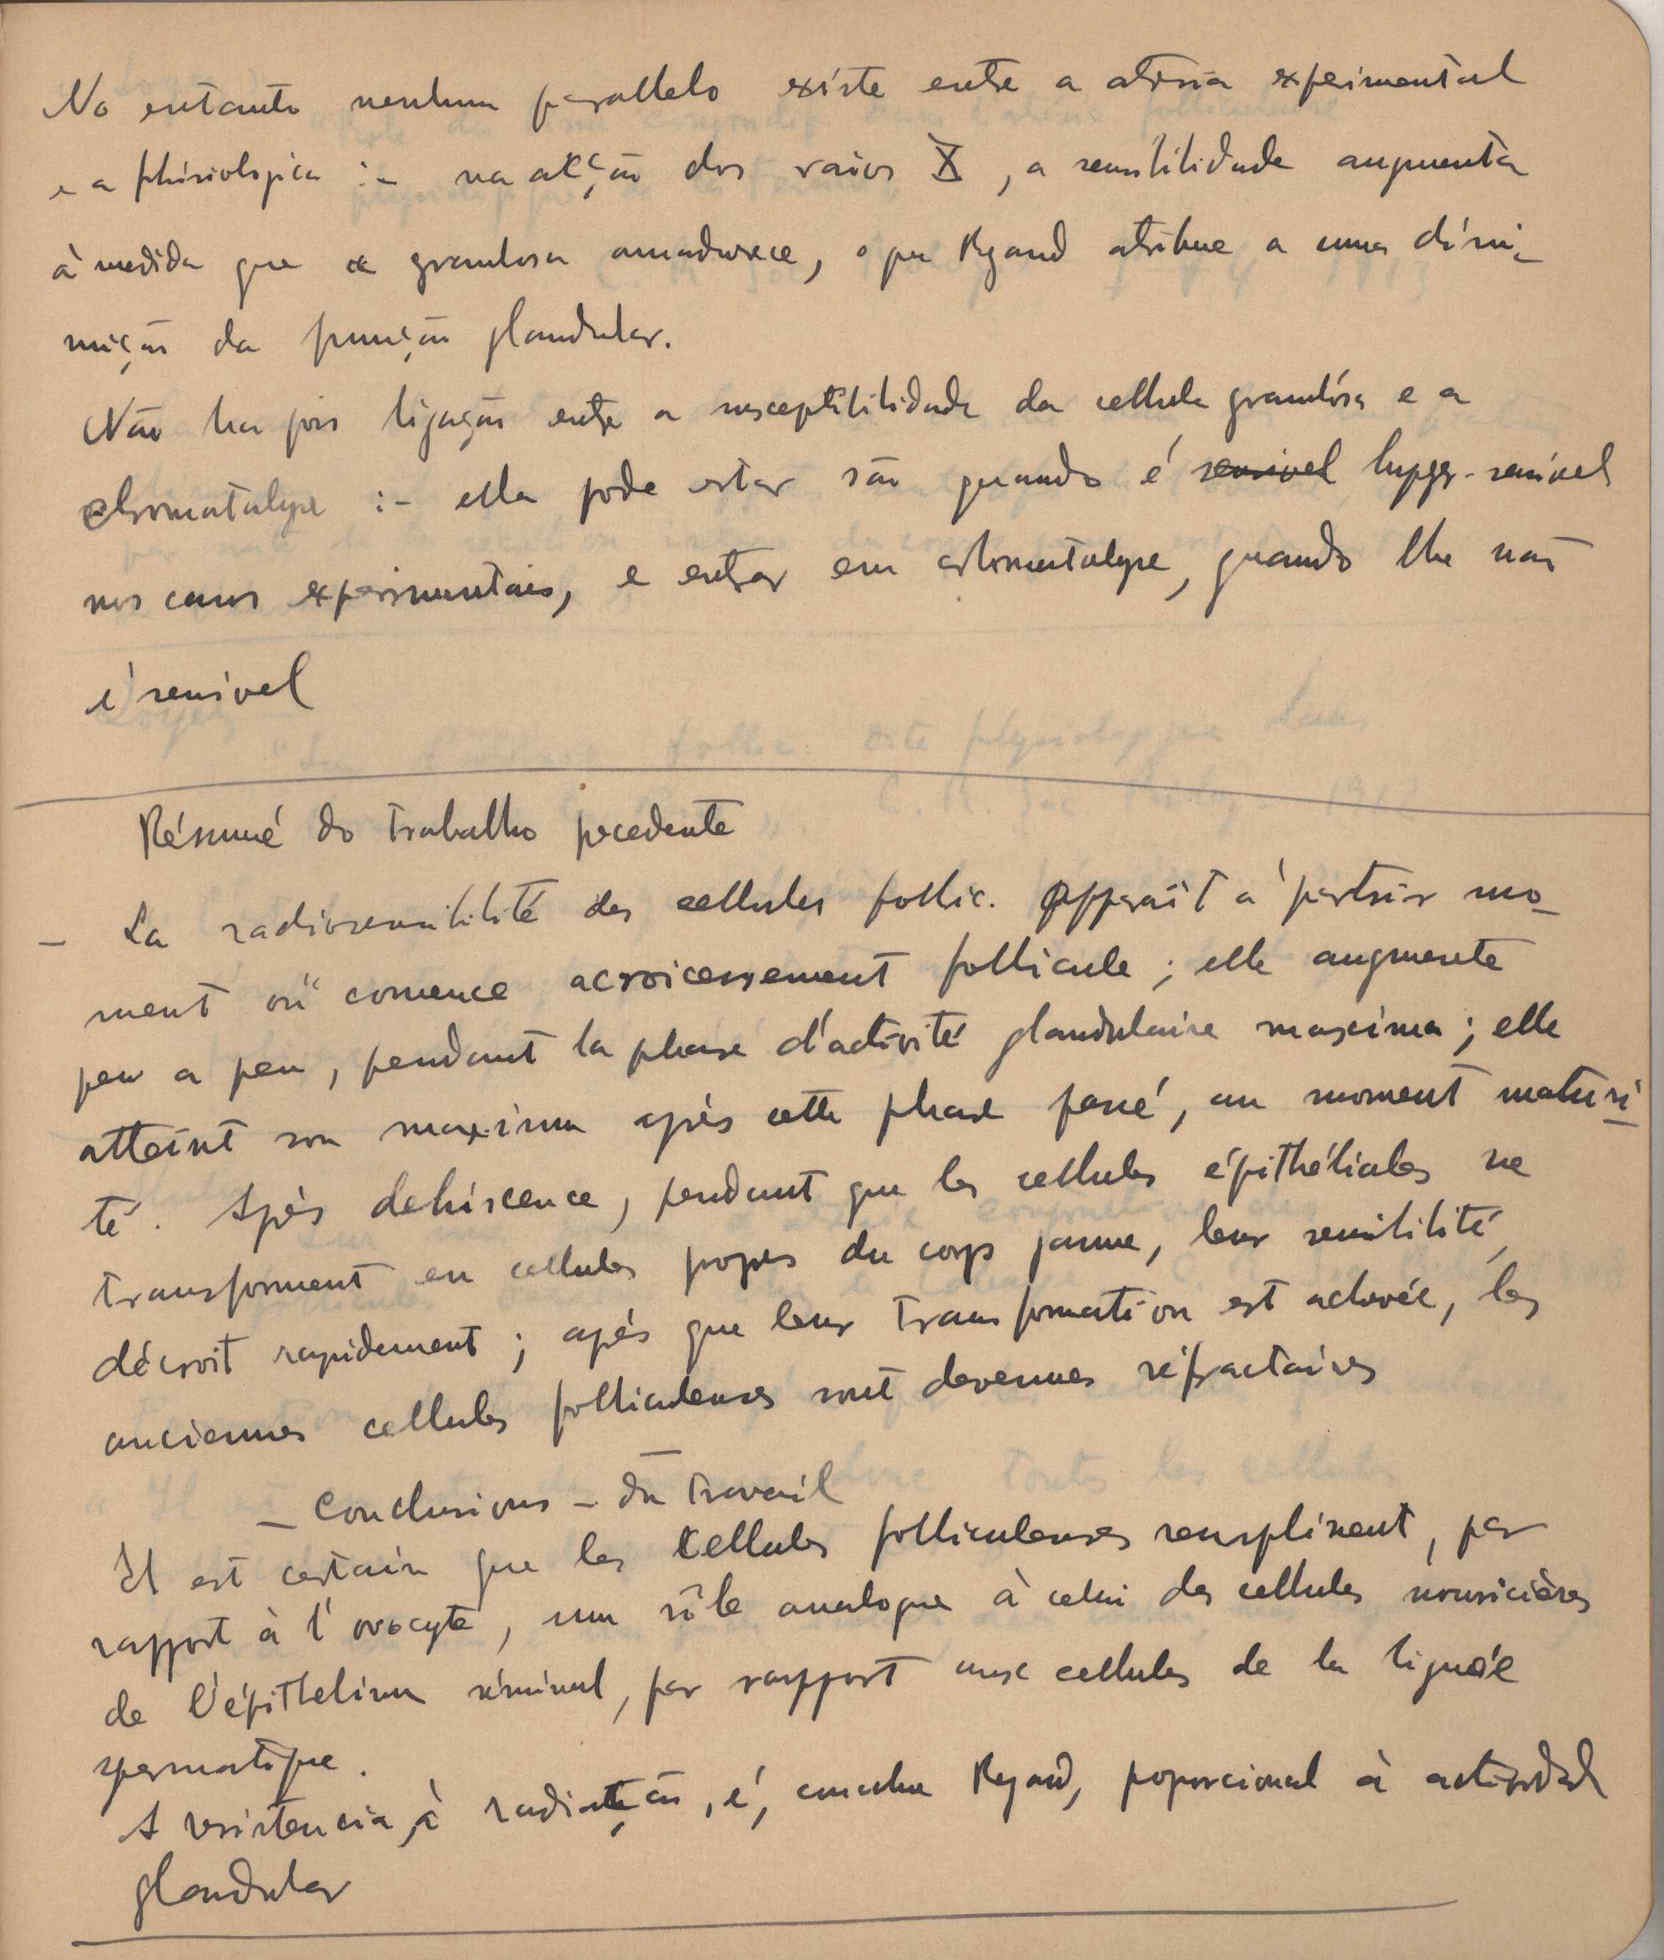 No entanto nenhum parallelo existe entre a atresia experimental
e a phisiologica :- na acção dos raios X, a sensibilidade augmenta
à medida que a granulosa amadurece, o que Regaud atribue a uma dimi-
nuição da função glandular.
Não ha pois ligação entre a susceptibilidade da cellula granulósa e a
chromatolyse :- ella pode estar sã quando é sensivel hyper-sensivel
nos casos experimentaes, e entrar em chromatolyse, quando lhe não
é sensivel
Résumé do trabalho precedente
- La radiosensibilité des cellules follic. apparaît à partir mo-
ment où comence acroicessement follicule ; elle augmente
peu a peu, pendant la phase d'activité glandulaire maxima ; elle
atteint son maximum après cette phase passé, au moment maturi-
té. Après dehiscence, pendant que les cellules épithéliales se
transforment en cellules propres du corps jaune, leur sensibilité
décroit rapidement ; après que leur transformation est achevée, les
anciennes cellules folliculeuses sont devenues réfractaires
- Conclusions - du travail
Il est certain que les Cellules folliculeuses remplissent, par
rapport à l'ovocyte, une rôle analogue à celui des cellules nourricières
de l'épithelium séminal, par rapport aux cellules de la lignée
spermatique.
A resistencia à radiação, é, conclue Regaud, proporcional à actividade
glandular